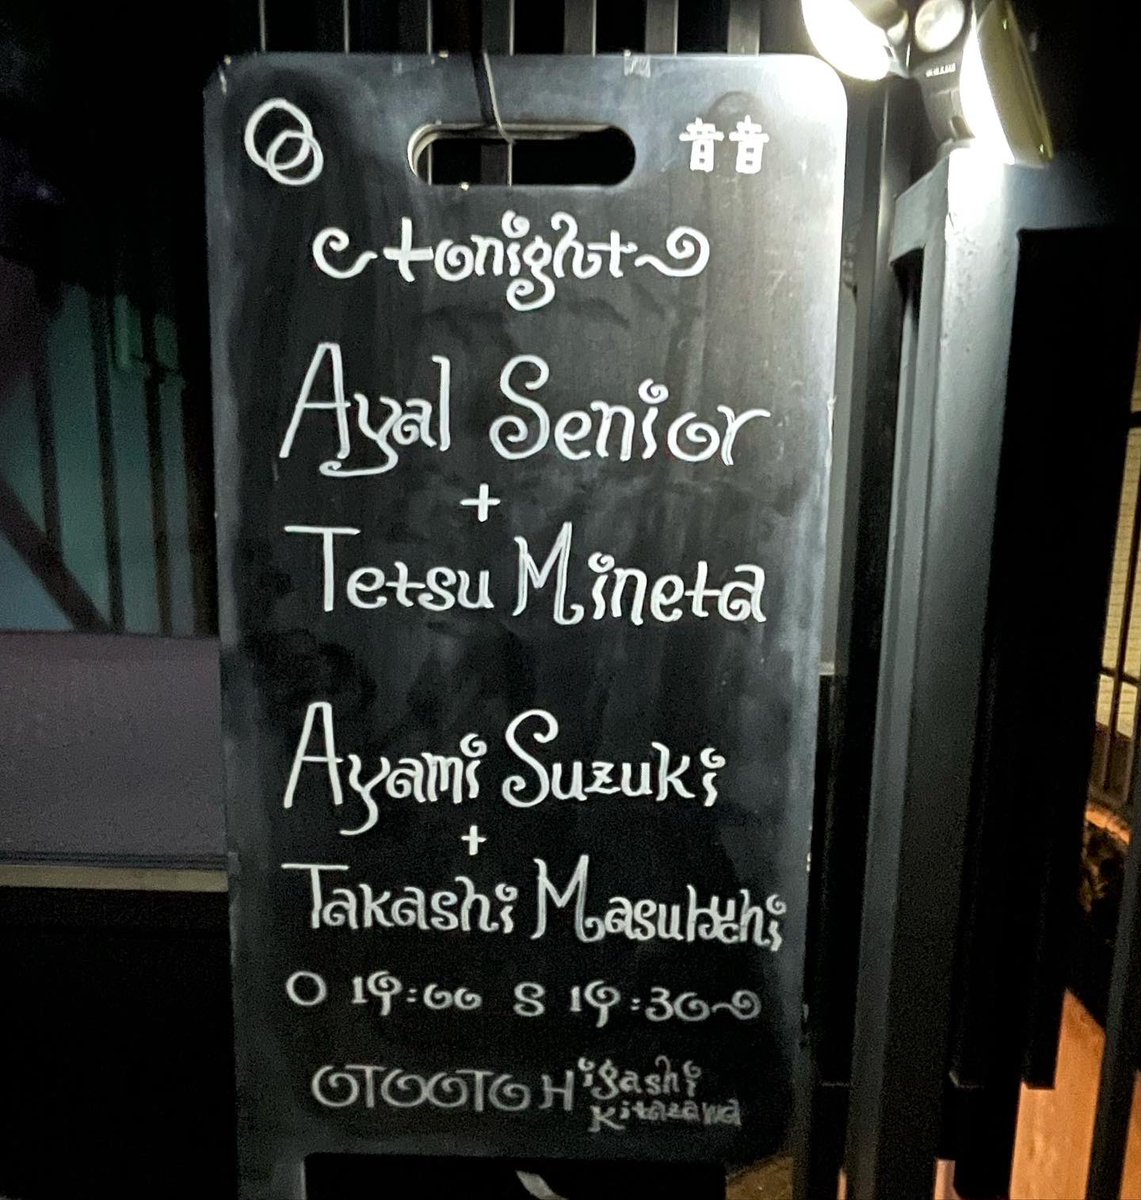 音音
tonight
Ayal Senior
+
Tetsu Mineta
Ayami Suzuki
+
Takashi Masubuchi
O 19:00 S 19:30~
OTOOTO Higashi
Kitazawa